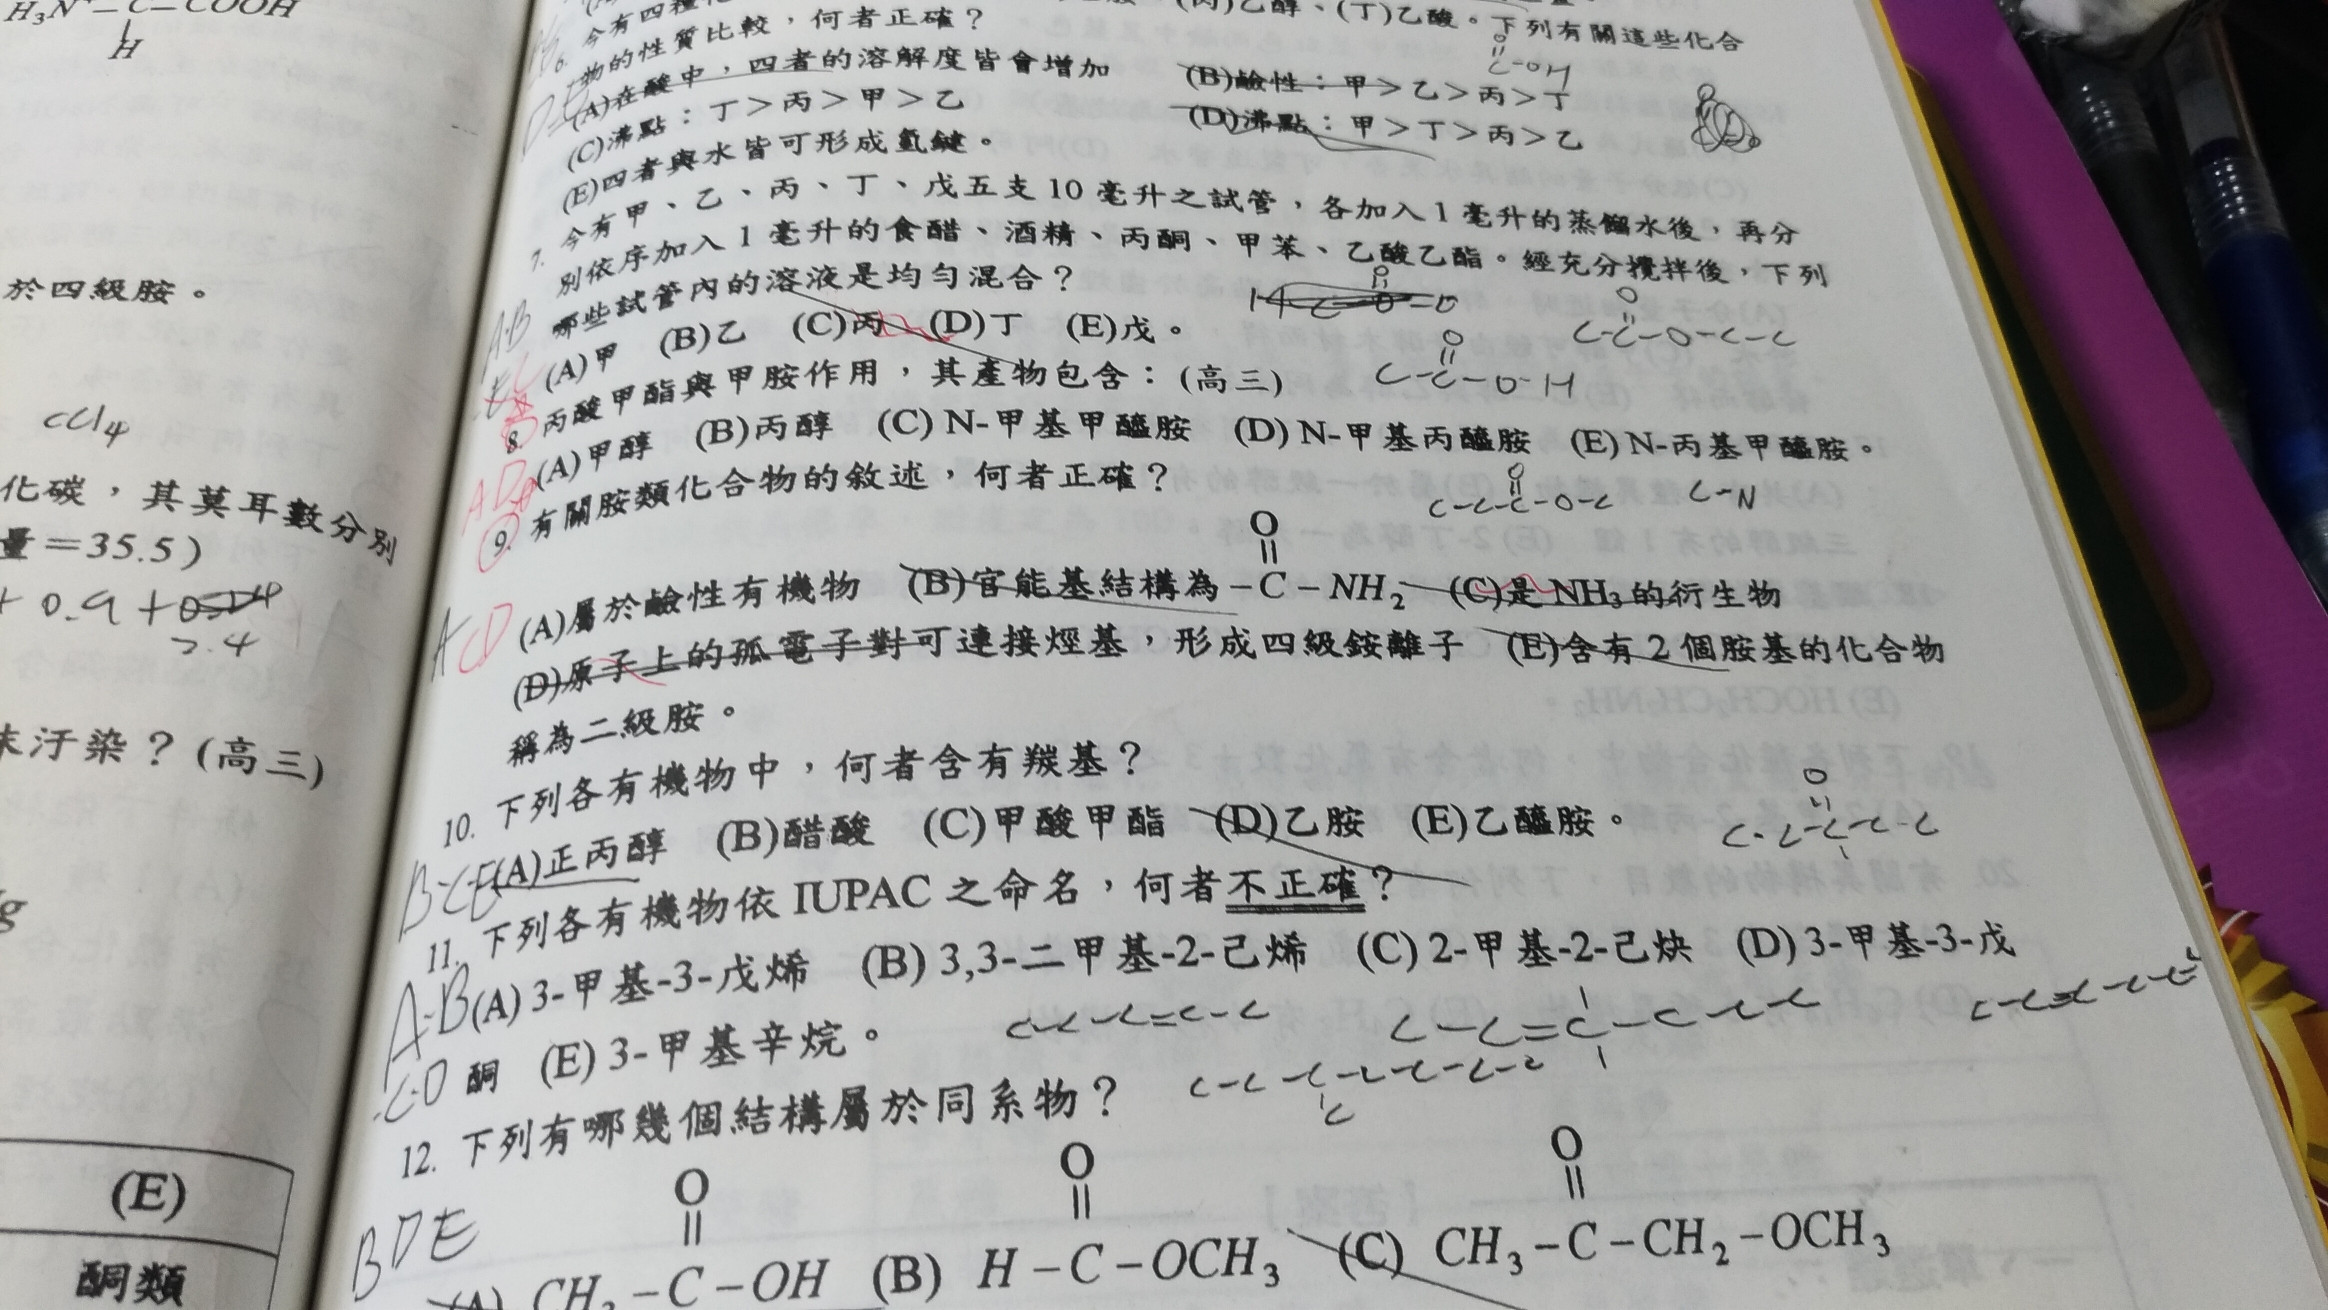 H₃N⁺－C－COOH
H
於四級胺。
CCl₄
化碳，其莫耳數分別
量＝35.5)
+ 0.9 +
2.4
末汙染？(高三)
(E)
酮類
6. 今有四種化
(丙)乙醇、(丁)乙酸。下列有關這些化合
物的性質比較，何者正確？
(A)在酸中，四者的溶解度皆會增加 (B)鹼性：甲＞乙＞丙＞丁
(C)沸點：丁＞丙＞甲＞乙 (D)沸點：甲＞丁＞丙＞乙
(E)四者與水皆可形成氫鍵。
O
C-OH
7. 今有甲、乙、丙、丁、戊五支10毫升之試管，各加入1毫升的蒸餾水後，再分
別依序加入1毫升的食醋、酒精、丙酮、甲苯、乙酸乙酯。經充分攪拌後，下列
哪些試管內的溶液是均勻混合？
A·B
(A)甲 (B)乙 (C)丙 (D)丁 (E)戊。
O
C-C-O-C-C
O
C-C-O-H
8. 丙酸甲酯與甲胺作用，其產物包含：(高三)
AD
(A)甲醇 (B)丙醇 (C) N-甲基甲醯胺 (D) N-甲基丙醯胺 (E) N-丙基甲醯胺。
O
C-C-C-O-C C-N
9. 有關胺類化合物的敘述，何者正確？
ACD
O
(A)屬於鹼性有機物 (B)官能基結構為－C－NH₂ (C)是NH₃的衍生物
(D)原子上的孤電子對可連接烴基，形成四級銨離子 (E)含有2個胺基的化合物
稱為二級胺。
10. 下列各有機物中，何者含有羰基？
B·C·E
(A)正丙醇 (B)醋酸 (C)甲酸甲酯 (D)乙胺 (E)乙醯胺。
O
C-C-C-C-C
11. 下列各有機物依IUPAC之命名，何者不正確？
A·B
·C·D
(A) 3-甲基-3-戊烯 (B) 3,3-二甲基-2-己烯 (C) 2-甲基-2-己炔 (D) 3-甲基-3-戊
酮 (E) 3-甲基辛烷。
C-C-C=C-C
C-C=C-C-C-C
C-C-C-C-C-C-C-C
C
12. 下列有哪幾個結構屬於同系物？
BDE
O O O
(A) CH₃－C－OH (B) H－C－OCH₃ (C) CH₃－C－CH₂－OCH₃